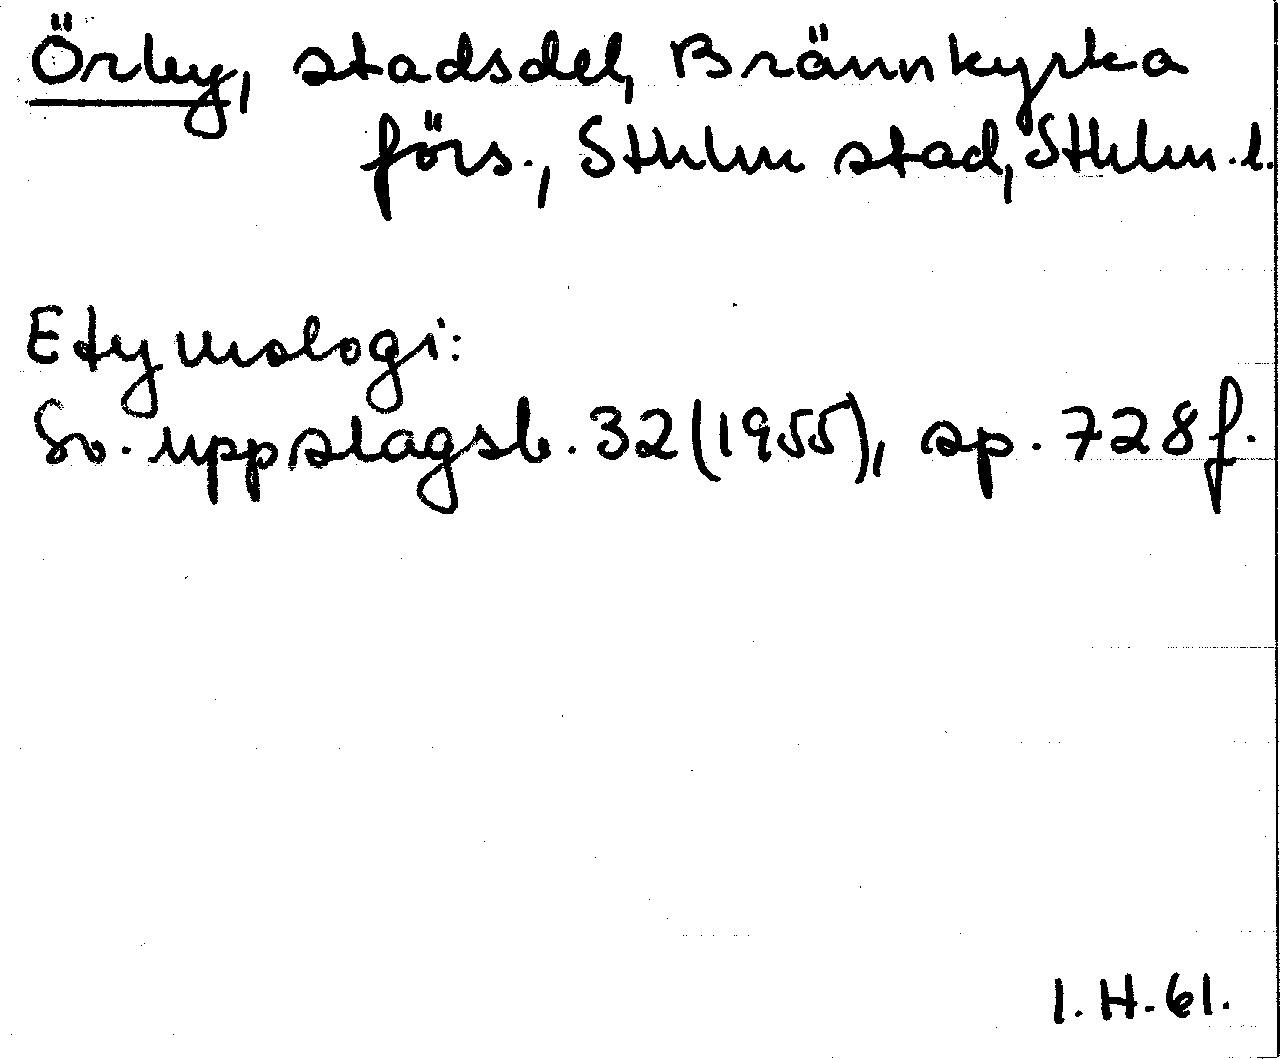 Örby, stadsdel, Brännkyrka
förs., Sthlm stad, Sthlm. l.
Etymologi:
Sv. uppslagsb. 32 (1955), sp. 728 f.
I. H. 61.